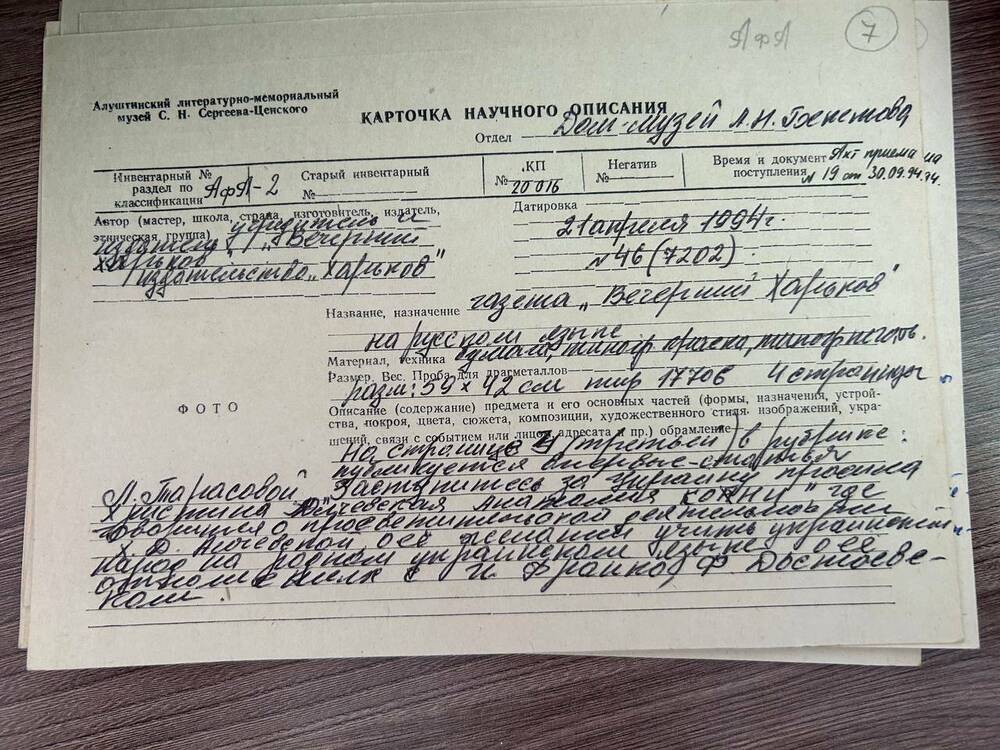 АфА
7
Алуштинский литературно-мемориальный
музей С. Н. Сергеева-Ценского
КАРТОЧКА НАУЧНОГО ОПИСАНИЯ
Отдел Дом-музей А.Н. Бекетова
Инвентарный №
раздел по
классификации АфА-2
Старый инвентарный
№
КП
№ 20 016
Негатив
№
Время и документ Акт приема на
поступления № 19 от 30.09.94 г.
Автор (мастер, школа, страна, изготовитель, издатель,
этническая группа) учредитель и
издатель „Вечерний
Харьков"
издательство „Харьков"
Датировка
21 апреля 1994 г
№ 46 (7202)
Название, назначение газета „Вечерний Харьков"
на русском языке
Материал, техника бумага, типогр краска, типогр печать.
Размер. Вес. Проба для драгметаллов
разм: 59 × 42 см тир 17706 4 страницы
ФОТО
Описание (содержание) предмета и его основных частей (формы, назначения, устрой-
ства, покроя, цвета, сюжета, композиции, художественного стиля изображений, укра-
шений, связи с событием или лицом, адресата и пр.) обрамление
На странице 3 (третьей) в рубрике:
публикуется впервые - статья
Л. Тарасовой „Заступитесь за Украину просила
Христина Алчевская Анатолия Кони", где
говорится о просветительской деятельности
Х. Д. Алчевской о ее желании учить украинский
народ на родном украинском языке, о ее
отношениях с И Франко, Ф Достоевс-
ким.